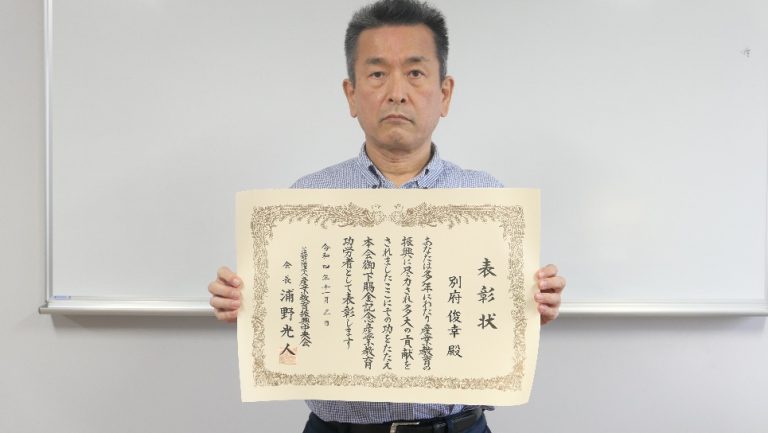 表彰状
別府俊幸殿
あなたは多年にわたり産業教育の
振興に尽力され多大の貢献を
されましたここにその功をたたえ
本会御下賜金記念産業教育
功労者として表彰します
令和四年十一月
産業教育振興中央会
会長 浦野光人